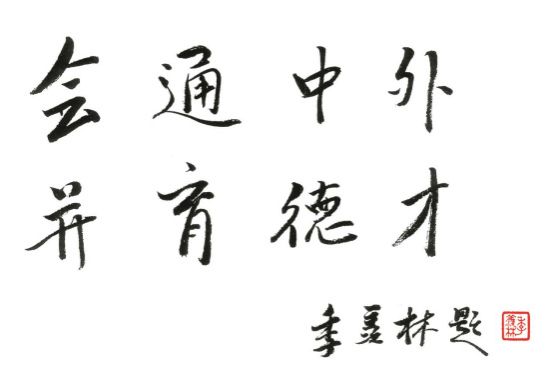 会通中外
并育德才
季羡林题
季羡林